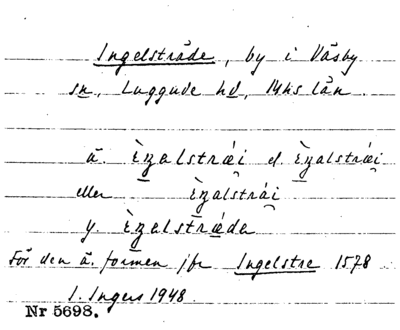 Ingelsträde, by i Väsby
sn, Luggude hd, Mhs län.
ä. È̱ŋalstrǽi el. È̱ŋalstrǽi̯
eller È̱ŋalstrái̯
y. È̱ŋalstræ̱da
För den ä. formen jfr Ingelstre 1578
I. Ingers 1948.
Nr 5698.